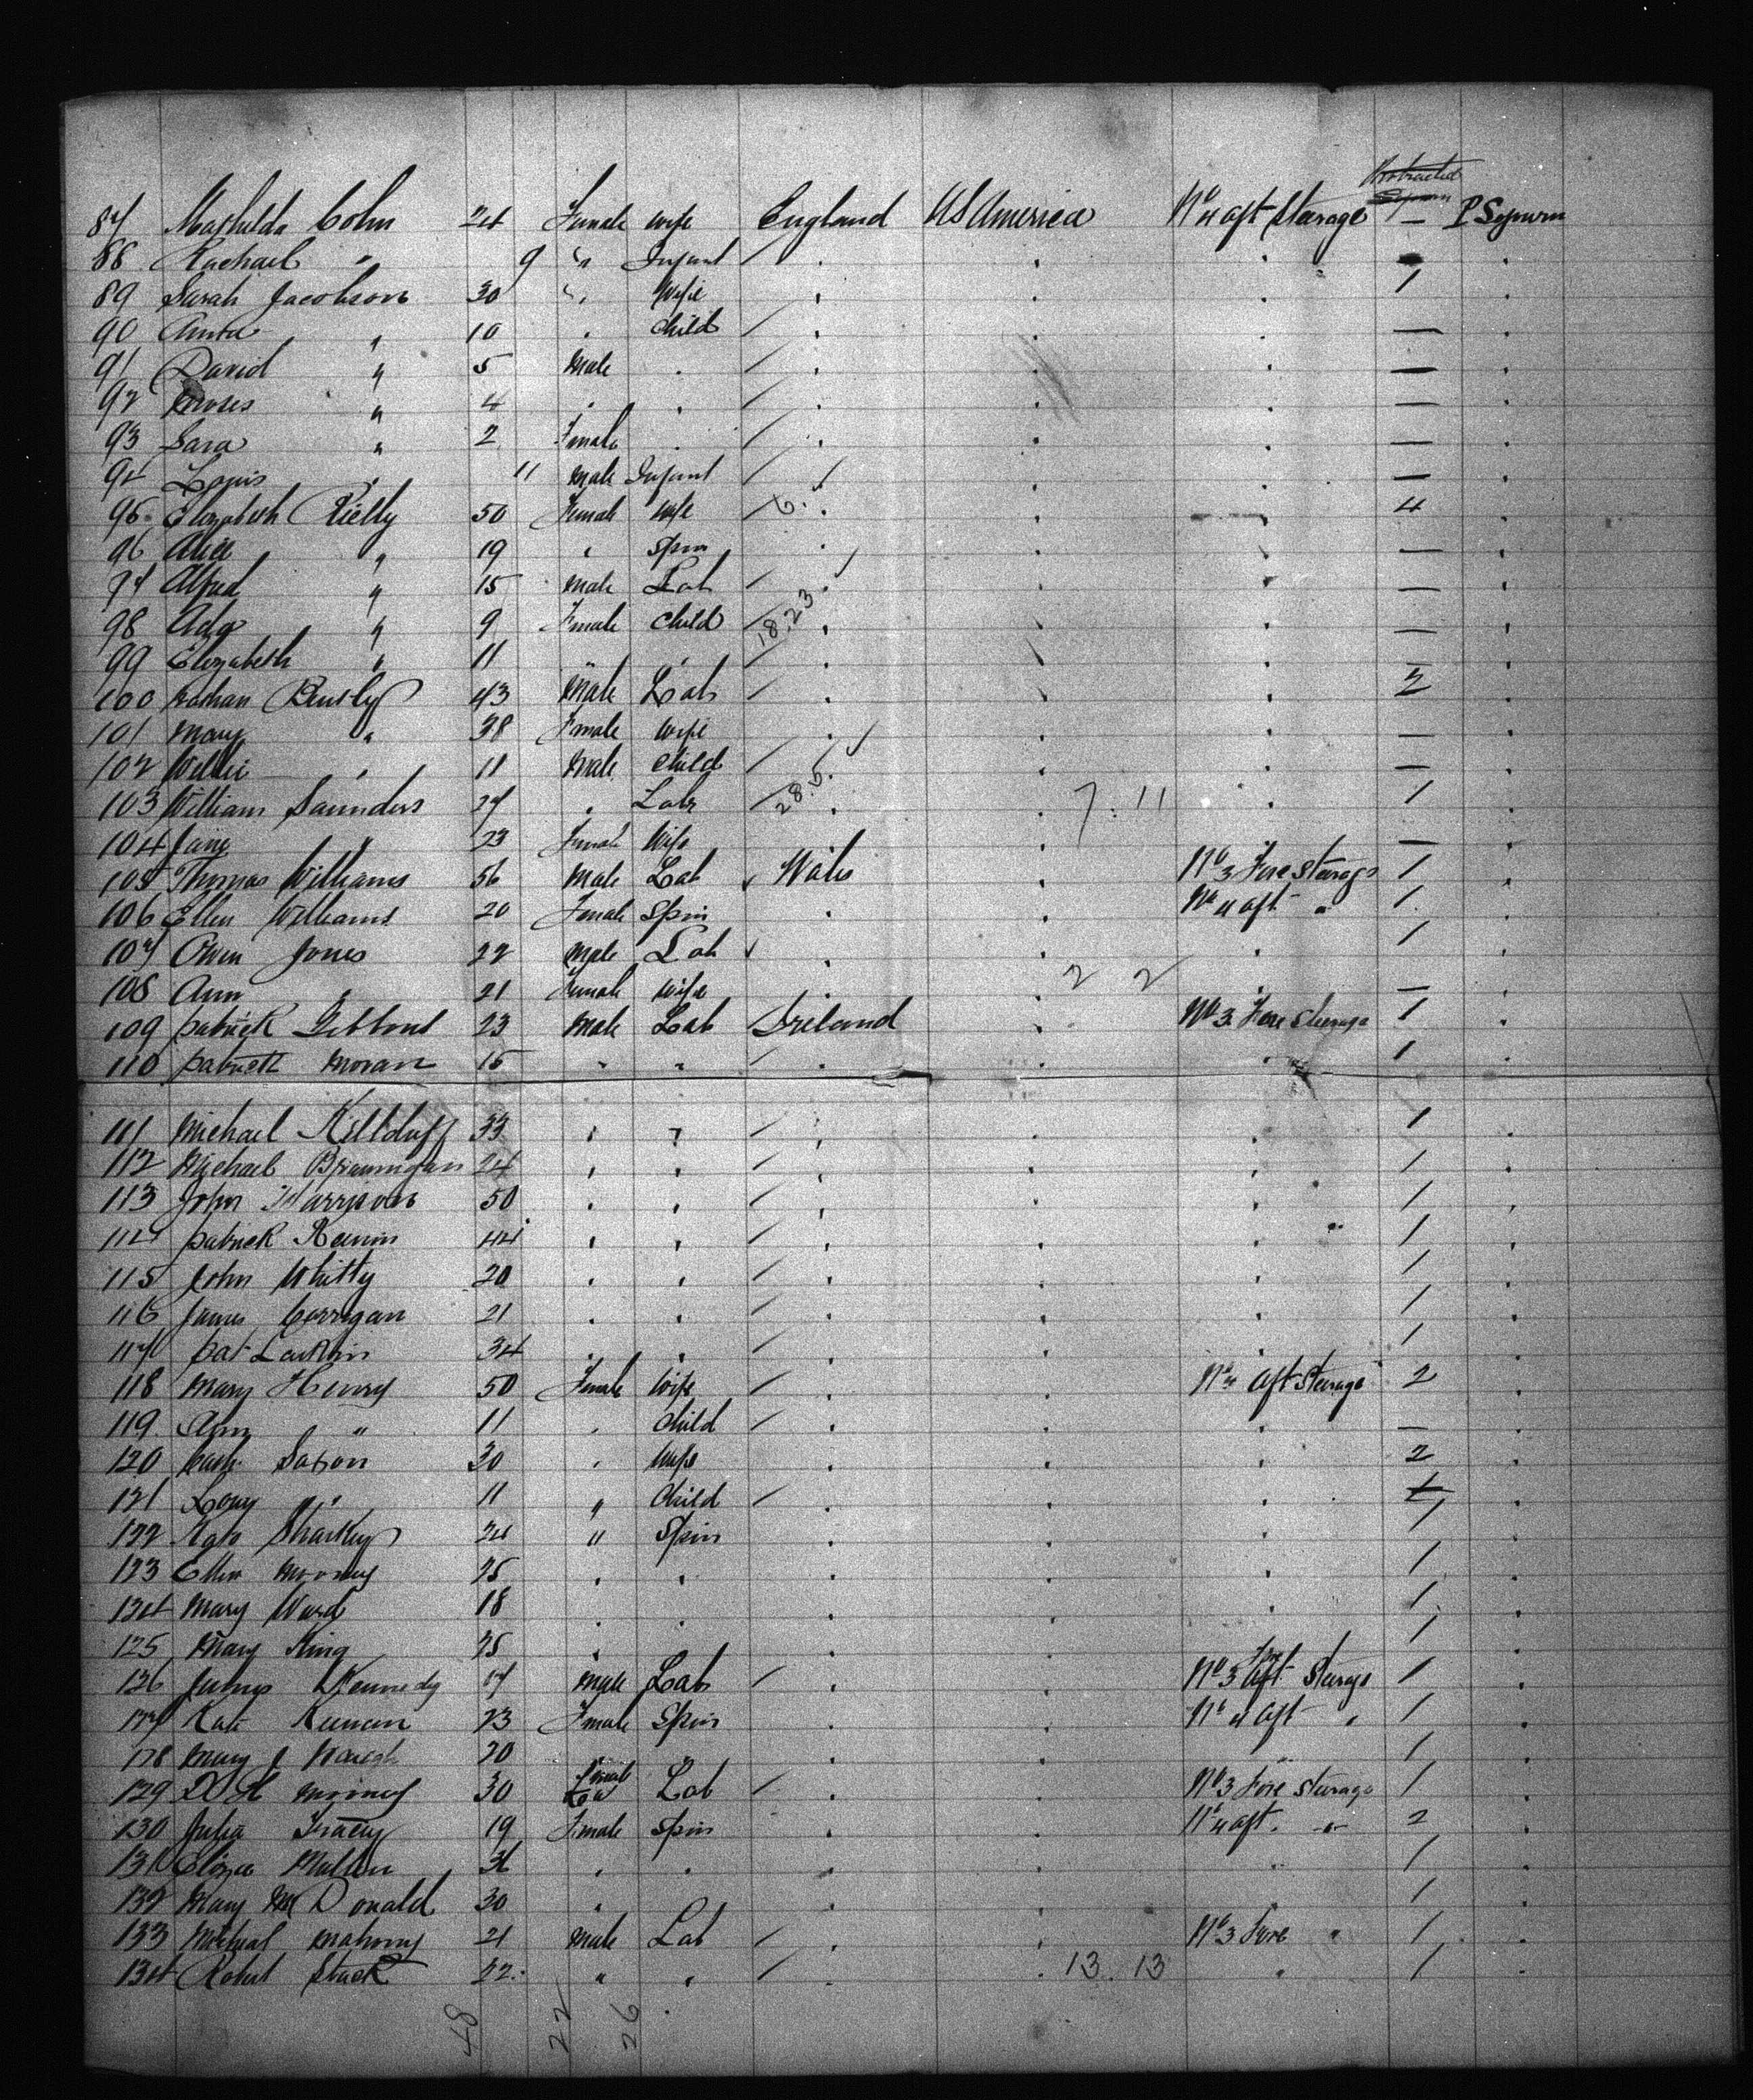 87 Mathilda Cohn 24 Female wife England US America No 4 aft Sterage — P Sojourn
88 Rachael " 9 " Infant / . . .
89 Sarah Jacobson 30 " Wife . . . 1 .
90 Anna " 10 . Child / . . . — .
91 David " 5 Male . / . . . — .
92 Moses " 4 . . / . . . — .
93 Sara " 2 Female . / . . . — .
94 Louis " 11 Male Infant / . . . — .
95 Elizabeth Rielly 50 Female Wife / 6 . . 4 .
96 Alice " 19 . Spin . . . — .
97 Alfred " 15 Male Lab / . . . — .
98 Ada " 9 Female Child / 18.23 . . . — .
99 Elizabeth " 11 " . / . . .
100 Nathan Bently 43 Male Lab / . . . 2 .
101 Mary " 38 Female Wife . . . — .
102 Willie " 11 Male Child / . . . — .
103 William Saunders 27 . Labr / 28.5 . 7 . 11 . 1 .
104 Jane " 23 Female Wife . . . — .
105 Thomas Williams 56 Male Lab Wales . No 3 Fore Sterage 1 .
106 Ellen Williams 20 Female Spin . . No 4 aft " 1 .
107 Owen Jones 22 Male Lab . . . 1 .
108 Ann " 21 Female Wife . . 2 2 . — .
109 Patrick Gibbons 23 Male Lab Ireland . No 3 Fore Sterage 1 .
110 Patrick Moran 15 " " / . . . 1 .
111 Michael Killduff 33 " " / . . . 1 .
112 Michael Brannigan 24 " " / . . . 1 .
113 John Harrison 50 " " / . . . 1 .
114 Patrick 44 " " / . . . 1 .
115 John Whitty 20 " " / . . . 1 .
116 James Corrigan 21 " " / . . . 1 .
117 Pat Larkin 34 " " / . . . 1 .
118 Mary Henry 50 Female Wife / . . No 4 aft Sterage 2 .
119 Ann " 11 . Child / . . . — .
120 30 . Wife . . . 2 .
121 " 11 " Child / . . .
122 Kate Sharkey 24 " Spin . . . 1 .
123 Ellen 25 . . . . . 1 .
124 Mary Ward 18 . . . . . 1 .
125 Mary King 25 . . . . 1 .
126 James Kennedy 17 Male Lab / . . No 3 Fore Sterage 1 .
127 Kate Keenan 23 Female Spin . . No 4 aft " 1 .
128 Mary J 20 . . . 1 .
129 30 Male Lab / . . No 3 Fore Sterage 1 .
130 Julia Tracey 19 Female Spin . . No 4 aft " 2 .
131 Eliza Mullen " " . . " 1 .
132 Mary McDonald 30 " . . . 1 .
133 Michael Mahony 21 Male Lab / . . No 3 Fore " 1 .
134 Robert Stack 22 " " / . . 13 . 13 " 1 .
48 22 26